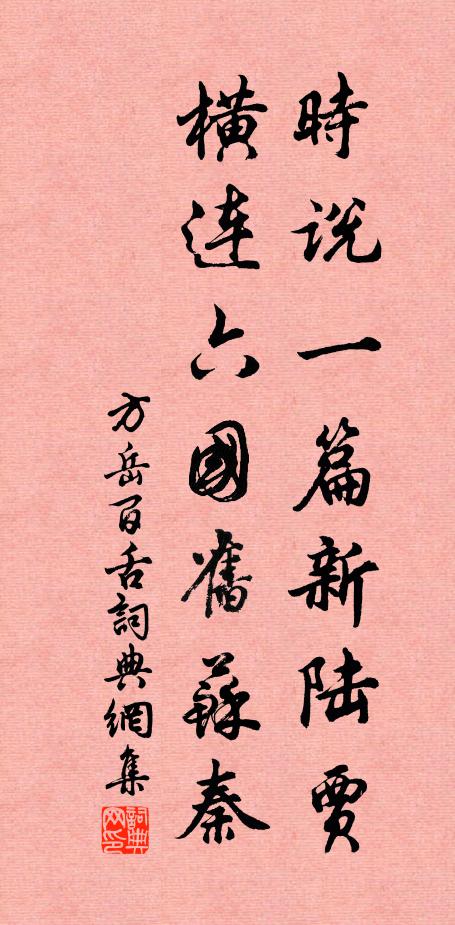 時説一篇新陸賈
横連六國舊蘇秦
方岳百舌詞典網集
詞典网印